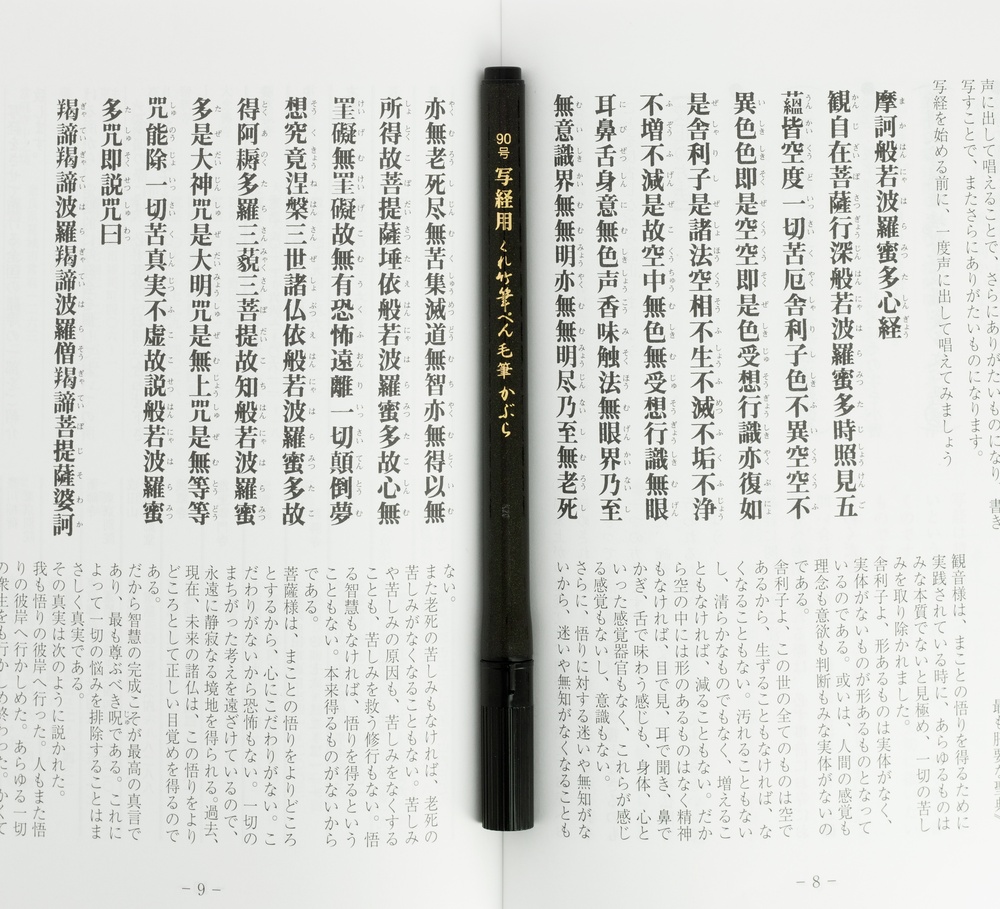 声に出して唱えることで、さらにありがたいものになり 書き
写すことで、またさらにありがたいものになります。
写経を始める前に、一度声に出して唱えてみましょう
摩訶般若波羅蜜多心経
観自在菩薩行深般若波羅蜜多時照見五
蘊皆空度一切苦厄舎利子色不異空空不
異色色即是空空即是色受想行識亦復如
是舎利子是諸法空相不生不滅不垢不浄
不増不減是故空中無色無受想行識無眼
耳鼻舌身意無色声香味触法無眼界乃至
無意識界無無明亦無無明尽乃至無老死
観音様は、まことの悟りを得るために
実践されている時に、あらゆるものは
みな本質でないと見極め、一切の苦し
みを取り除かれました。
舎利子よ、形あるものは実体がなく、
実体がないものが形あるものとなって
いるのである。或いは、人間の感覚も
理念も意欲も判断もみな実体がないの
である。
舎利子よ、この世の全てのものは空で
あるから、生ずることもなければ、な
くなることもない。汚れることもない
し、清らかなものでもなく、増えるこ
ともなければ、減ることもない。だか
ら空の中には形のあるものはなく精神
もなければ、目で見、耳で聞き、鼻で
かぎ、舌で味わう感じも、身体、心と
いった感覚器官もなく、これらが感じ
る感覚もないし、意識もない。
さらに、悟りに対する迷いや無知がな
いから、迷いや無知がなくなることも
-8-
90号 写経用 くれ竹筆ぺん 毛筆 かぶら
亦無老死尽無苦集滅道無智亦無得以無
所得故菩提薩埵依般若波羅蜜多故心無
罣礙無罣礙故無有恐怖遠離一切顛倒夢
想究竟涅槃三世諸仏依般若波羅蜜多故
得阿耨多羅三藐三菩提故知般若波羅蜜
多是大神咒是大明咒是無上咒是無等等
咒能除一切苦真実不虚故説般若波羅蜜
多咒即説咒曰
羯諦羯諦波羅羯諦波羅僧羯諦菩提薩婆訶
ない。
また老死の苦しみもなければ、老死の
苦しみがなくなることもない。苦しみ
や苦しみの原因も、苦しみをなくする
ことも、苦しみを救う修行もない。悟
る智慧もなければ、悟りを得るという
こともない。本来得るものがないから
である。
菩薩様は、まことの悟りをよりどころ
とするから、心にこだわりがない。こ
だわりがないから恐怖もない。一切の
まちがった考えを遠ざけているので、
永遠に静寂なる境地を得られる。過去、
現在、未来の諸仏は、この悟りをより
どころとして正しい目覚めを得るので
ある。
だから智慧の完成こそが最高の真言で
あり、最も尊ぶべき呪である。これに
よって一切の悩みを排除することはま
さしく真実である。
その真実は次のように説かれた。
我も悟りの彼岸へ行った。人もまた悟
りの彼岸へ行かしめた。あらゆる一切
-9-